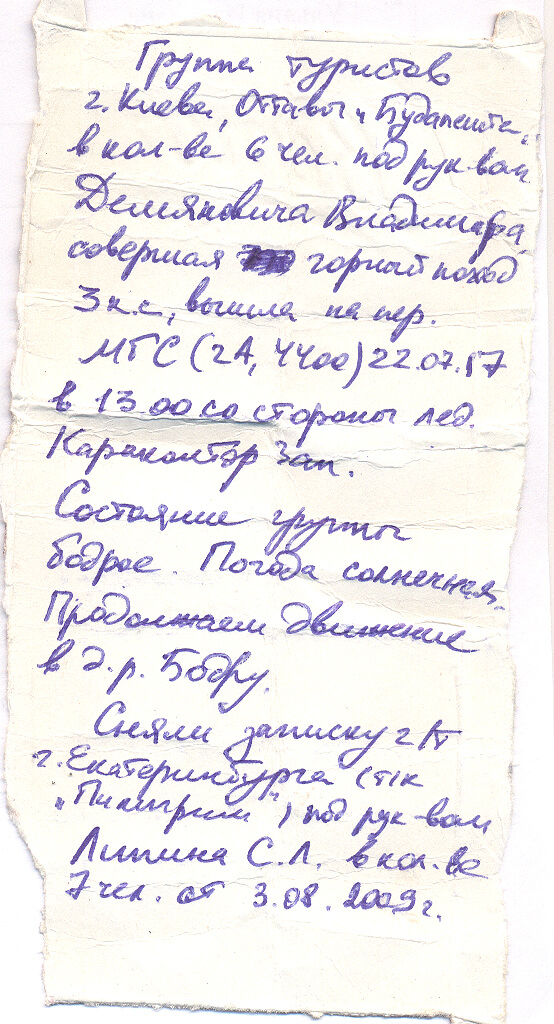 Группа туристов
г. Киева, Оттавы и Будапешта,
в кол-ве 6 чел. под рук-вом
Демяновича Владимира,
совершая горный поход
3 к.с., вышла на пер.
МГС (2А, 4400) 22.07.17
в 13.00 со стороны лед.
Караколтор Зап.
Состояние группы
бодрое. Погода солнечная.
Продолжаем движение
в д.р. Бодру.
Сняли записку г/т
г. Екатеринбурга (т/к
"Пилигрим") под рук-вом
Липина С.Л. в кол-ве
7 чел. от 3.08.2009 г.